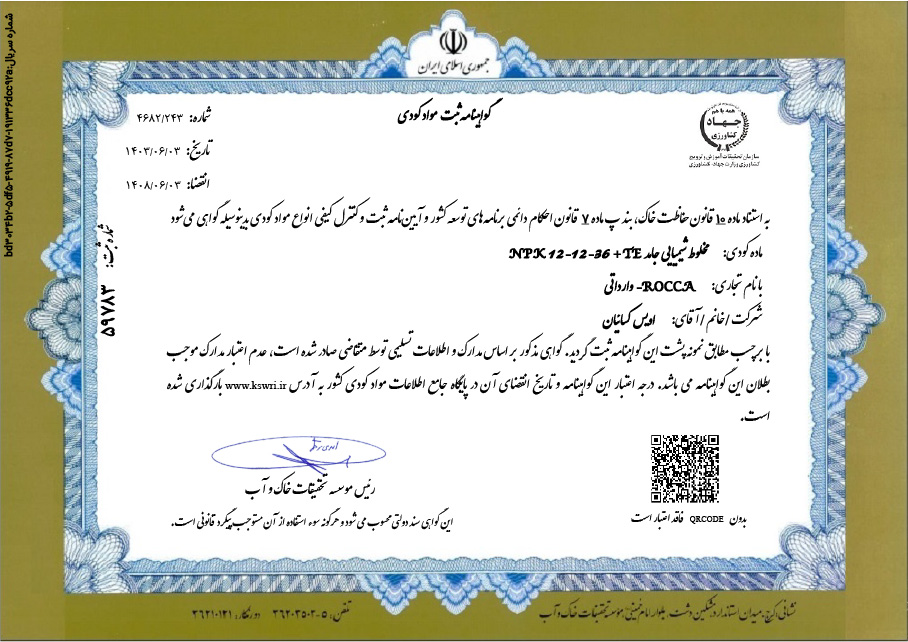 جمهوری اسلامی ایران
همه با هم
جهاد
کشاورزی
سازمان تحقیقات، آموزش و ترویج
کشاورزی وزارت جهاد کشاورزی
گواهینامه ثبت مواد کودی
شماره: ۴۶۸۲/۲۴۳
تاریخ: ۱۴۰۳/۰۶/۰۳
انقضا: ۱۴۰۸/۰۶/۰۳
به استناد ماده ۱۰ قانون حفاظت خاک، بند پ ماده ۷ قانون احکام دائمی برنامه های توسعه کشور و آیین نامه ثبت و کنترل کیفی انواع مواد کودی بدینوسیله گواهی می شود
ماده کودی: مخلوط شیمیایی جامد NPK 12-12-36 + TE
با نام تجاری: ROCCA- وارداتی
شرکت / خانم / آقای: اویس کیانیان
با برچسب مطابق نمونه پشت این گواهینامه ثبت گردید. گواهی مذکور بر اساس مدارک و اطلاعات تسلیمی توسط متقاضی صادر شده است، عدم اعتبار مدارک موجب
بطلان این گواهینامه می باشد. درجه اعتبار این گواهینامه و تاریخ انقضای آن در پایگاه جامع اطلاعات مواد کودی کشور به آدرس www.kswri.ir بارگذاری شده
است.
رئیس موسسه تحقیقات خاک و آب
بدون QRCODE فاقد اعتبار است
این گواهی سند دولتی محسوب می شود و هرگونه سوء استفاده از آن مستوجب پیگرد قانونی است.
شماره ثبت: ۵۹۷۸۳
نشانی: کرج، میدان استاندارد، مشکین دشت، بلوار امام خمینی، موسسه تحقیقات خاک و آب
تلفن: ۵-۳۶۲۰۳۵۰۳ دورنگار: ۳۶۲۱۰۱۲۱
شماره سریال: